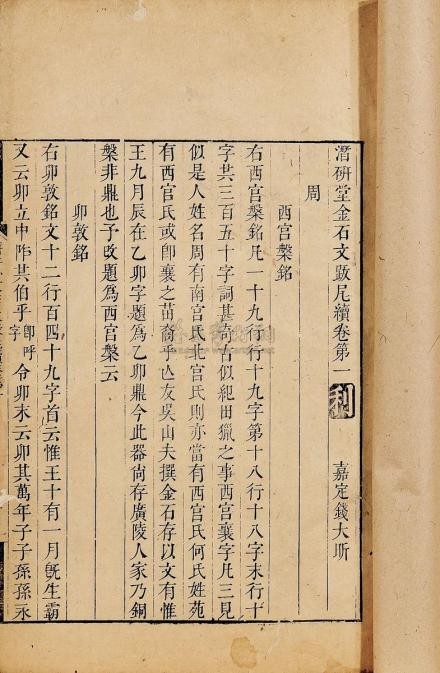 潛研堂金石文跋尾續卷第一
利
嘉定錢大昕
周
西宫槃銘
右西宫槃銘凡一十九行行十九字第十八行十八字末行十
字共三百五十字詞甚奇古似紀田獵之事西宫襄字凡三見
似是人姓名周有南宫氏北宫氏則亦當有西宫氏何氏姓苑
有西宫氏或卽襄之苗裔乎亡友吳山夫撰金石存以文有惟
王九月辰在乙卯字題爲乙卯鼎今此器尙存廣陵人家乃銅
槃非鼎也予改題爲西宫槃云
卯敦銘
右卯敦銘文十二行百四十九字首云惟王十有一月旣生霸
又云卯立中阼其伯乎卽呼字令卯末云卯其萬年子子孫孫永